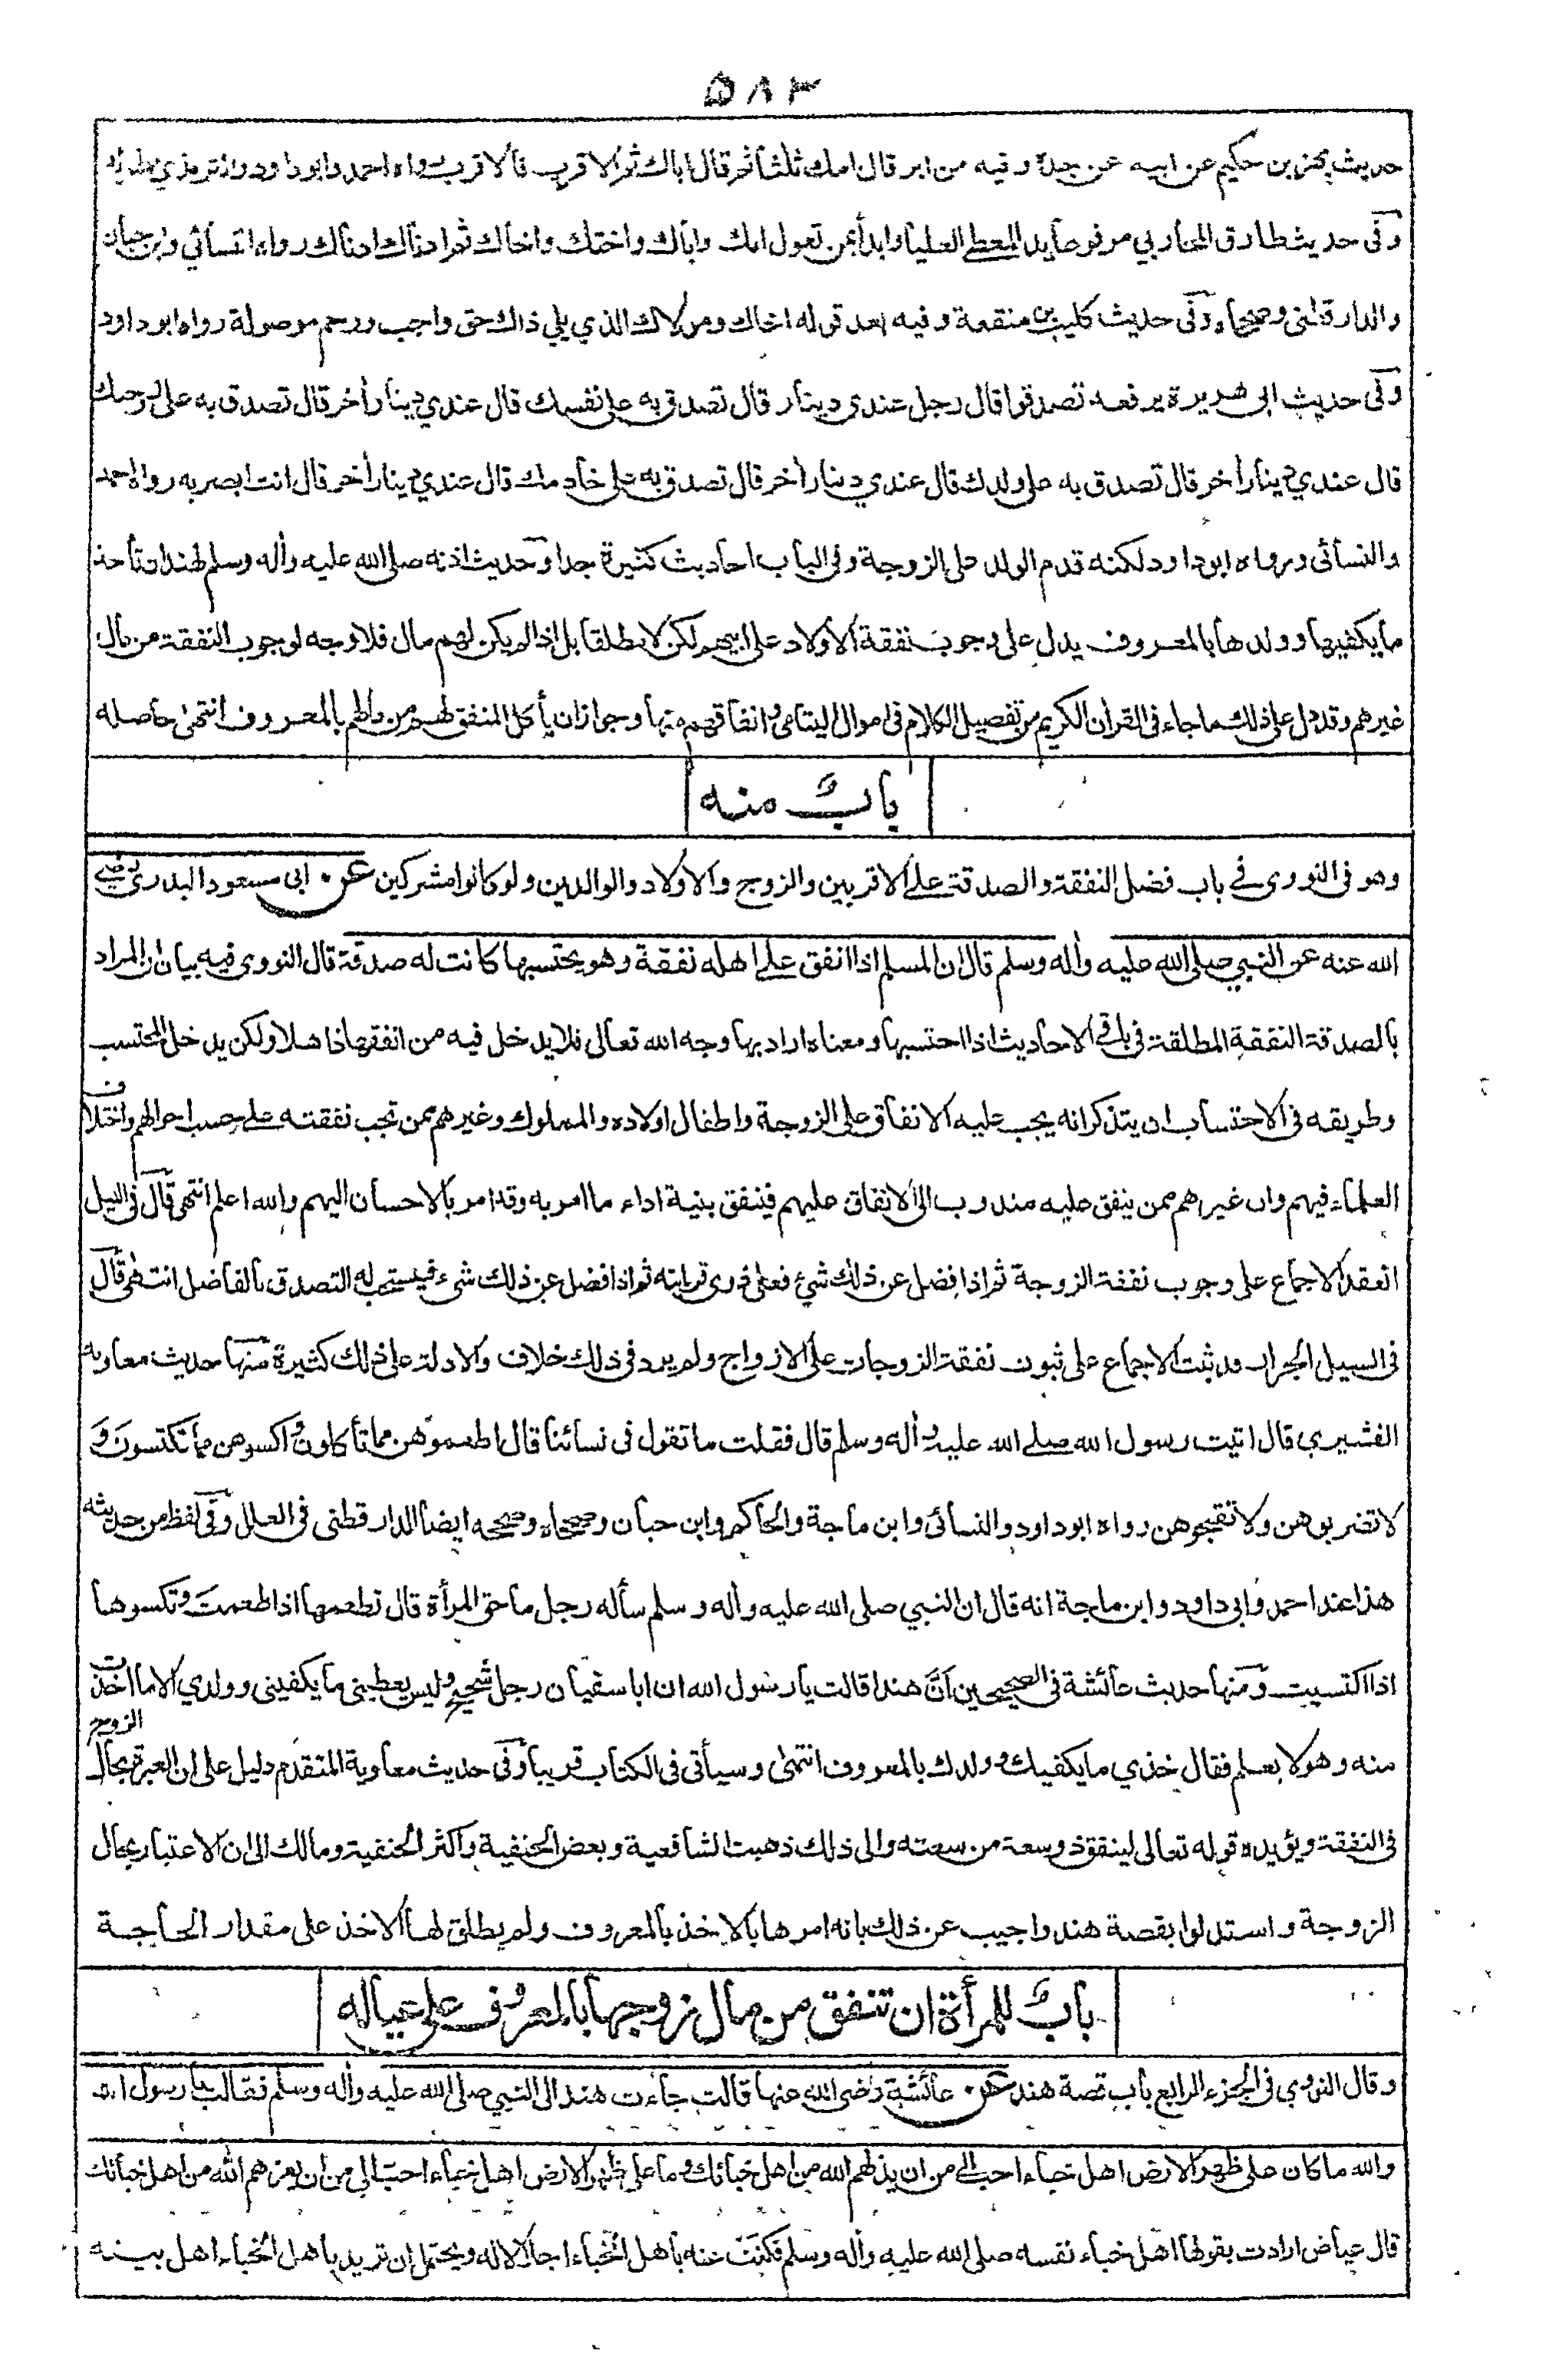 ٥٨٣
حديث بهز بن حكيم عن ابيه عن جده وفيه من ابر قال امك ثلثا ثم قال اباك ثم الاقرب فالاقرب رواه احمد وابوداود والترمذي
وفى حديث طارق المحاربي مرفوعا يد المعطي العليا وابدأ بمن تعول امك واباك واختك واخاك ثم ادناك ادناك رواه النسائي وابن حبان
والدارقطنى وصححاه وفى حديث كليب بن منقعة وفيه بعد قوله اخاك ومولاك الذي يلي ذاك حق واجب ورحم موصولة رواه ابو داود
وفى حديث ابى هريرة يرفعه تصدقوا قال رجل عندي دينار قال تصدق به على نفسك قال عندي دينار أخر قال تصدق به على زوجك
قال عندي دينار أخر قال تصدق به على ولدك قال عندي دينار أخر قال تصدق به على خادمك قال عندي دينار أخر قال انت ابصر به رواه احمد
والنسائى ورواه ابوداود لكنه قدم الولد على الزوجة وفى الباب احاديث كثيرة جدا وحديث اذنه صلى الله عليه وأله وسلم لهند ان تأخذ
ما يكفيها وولدها بالمعروف يدل على وجوب نفقة الاولاد على ابيهم لكن لا مطلقا بل اذا لم يكن لهم مال فلا وجه لوجوب النفقة من مال
غيرهم وقد دل على ذلك ما جاء فى القرأن الكريم من تفصيل الكلام فى اموال اليتامى وانفاقهم منها وجواز ان يأكل المنفق لهم من مالهم بالمعروف انتهى حاصله
باب منه
وهو فى النووى فے باب فضل النفقة والصدقة على الاقربين والزوج والاولاد والوالدين ولو كانوا مشركين عن ابى مسعود البدرى رضي
الله عنه عن النبي صلى الله عليه وأله وسلم قال ان المسلم اذا انفق على اهله نفقة وهو يحتسبها كانت له صدقة قال النووى فيه بيان ان المراد
بالصدقة النفقة المطلقة فى باقى الاحاديث اذا احتسبها ومعناه اراد بها وجه الله تعالى فلا يدخل فيه من انفقها ذاهلا ولكن يدخل المحتسب
وطريقه فى الاحتساب ان يتذكر انه يجب عليه الانفاق على الزوجة واطفال اولاده والمملوك وغيرهم ممن تجب نفقته على حسب احوالهم واختلاف
العلماء فيهم وان غيرهم ممن ينفق عليه مندوب الى الانفاق عليهم فينفق بنية اداء ما امر به وقد امر بالاحسان اليهم والله اعلم انتهى قال فى النيل
انعقد الاجماع على وجوب نفقة الزوجة ثم اذا فضل عن ذلك شئ فعلى ذوى قرابته ثم اذا فضل عن ذلك شىء فيستحب له التصدق بالفاضل انتهى قال
فى السيل الجرار قد ثبت الاجماع على ثبوت نفقة الزوجات على الازواج ولم يرد فى ذلك خلاف والادلة على ذلك كثيرة منها حديث معاوية
القشيري قال اتيت رسول الله صلى الله عليه وأله وسلم قال فقلت ما تقول فى نسائنا قال اطعموهن مما تأكلون واكسوهن مما تكتسون و
لا تضربوهن ولا تقبحوهن رواه ابو داود والنسائى وابن ماجة والحاكم وابن حبان وصححاه وصححه ايضا الدارقطنى فى العلل وفى لفظ من حديثه
هذا عند احمد وابى داود وابن ماجة انه قال ان النبي صلى الله عليه وأله وسلم سأله رجل ما حق المرأة قال تطعمها اذا طعمت وتكسوها
اذا اكتسيت ومنها حديث عائشة فى الصحيحين ان هندا قالت يا رسول الله ان ابا سفيان رجل شحيح وليس يعطينى ما يكفينى وولدي الا ما اخذت
منه وهو لا يعلم فقال خذي ما يكفيك وولدك بالمعروف انتهى وسيأتى فى الكتاب قريبا وفى حديث معاوية المتقدم دليل على ان العبرة بحال الزوج
فى النفقة ويؤيده قوله تعالى لينفق ذو سعة من سعته والى ذلك ذهبت الشافعية وبعض الحنفية واكثر الحنفية ومالك الى ان الاعتبار بحال
الزوجة واستدلوا بقصة هند واجيب عن ذلك بانه امرها بالاخذ بالمعروف ولم يطلق لها الاخذ على مقدار الحاجة
باب للمرأة ان تنفق من مال زوجها بالمعروف على عياله
وقال النووي فى الجزء الرابع باب قصة هند عن عائشة رضى الله عنها قالت جاءت هند الى النبي صلى الله عليه وأله وسلم فقالت يا رسول الله
والله ما كان على ظهر الارض اهل خباء احب الى من ان يذلهم الله من اهل خبائك وما على ظهر الارض اهل خباء احب الي من ان يعزهم الله من اهل خبائك
قال عياض ارادت بقولها اهل خباء نفسه صلى الله عليه وأله وسلم فكنت عنه باهل الخباء اجلالا له ويحتمل ان تريد باهل الخباء اهل بيته